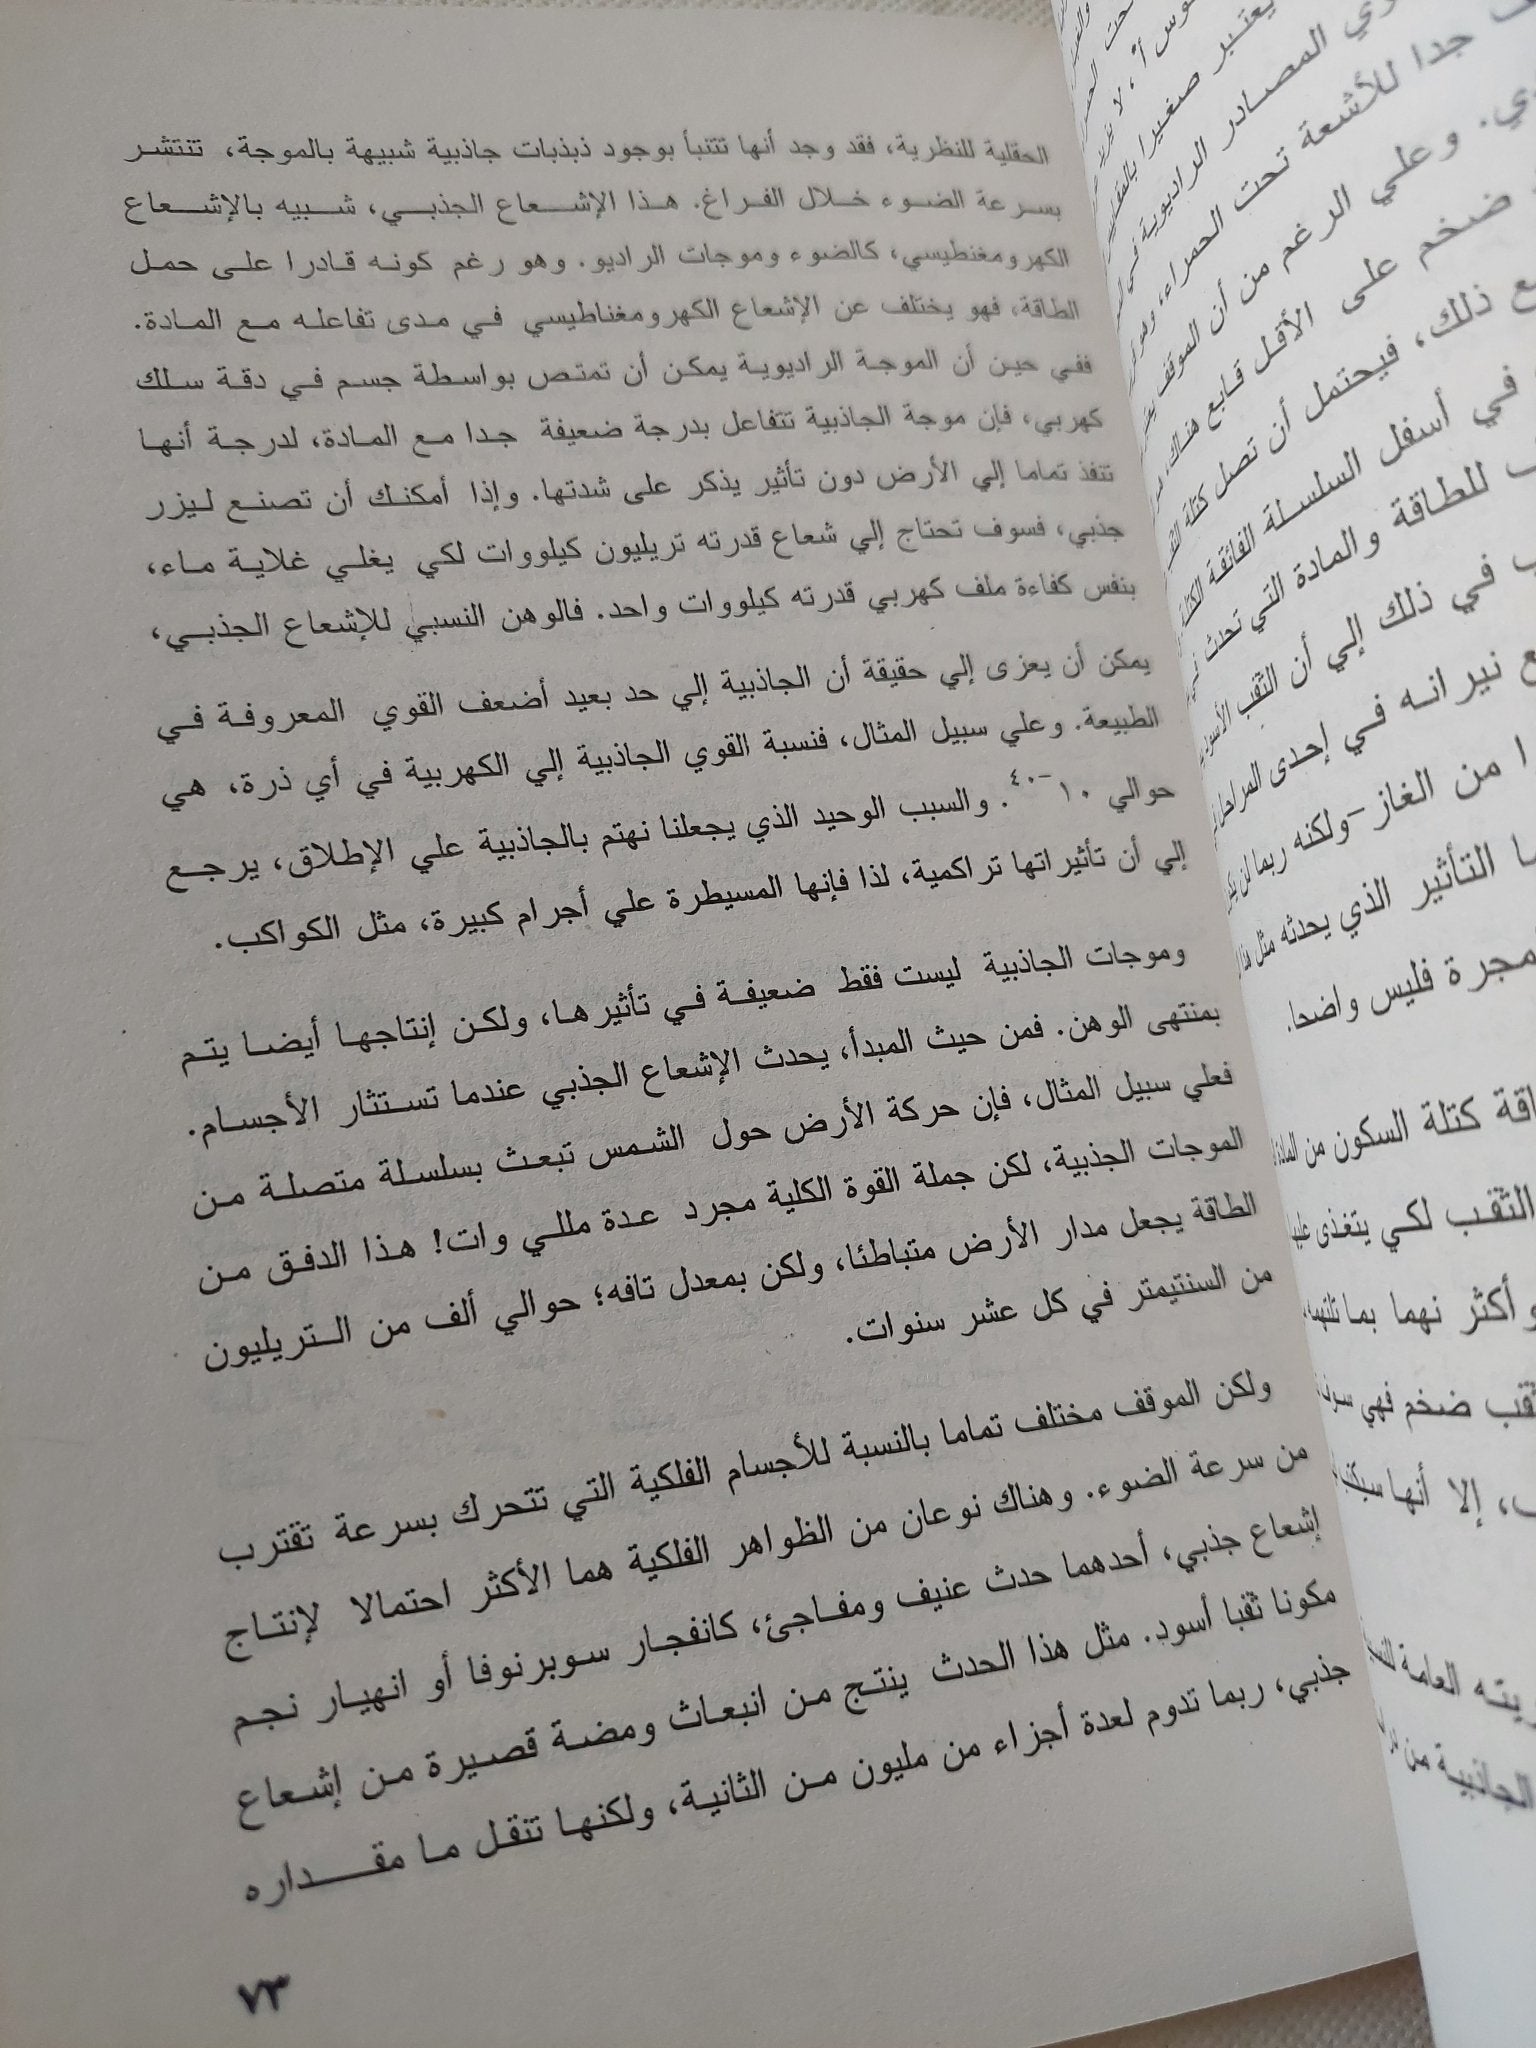 الحقلية للنظرية، فقد وجد أنها تتنبأ بوجود ذبذبات جاذبية شبيهة بالموجة، تنتشر
بسرعة الضوء خلال الفراغ. هذا الإشعاع الجذبي، شبيه بالإشعاع
الكهرومغنطيسي، كالضوء وموجات الراديو. وهو رغم كونه قادرا على حمل
الطاقة، فهو يختلف عن الإشعاع الكهرومغناطيسي في مدى تفاعله مع المادة.
ففي حين أن الموجة الراديوية يمكن أن تمتص بواسطة جسم في دقة سلك
كهربي، فإن موجة الجاذبية تتفاعل بدرجة ضعيفة جدا مع المادة، لدرجة أنها
تنفذ تماما إلي الأرض دون تأثير يذكر على شدتها. وإذا أمكنك أن تصنع ليزر
جذبي، فسوف تحتاج إلي شعاع قدرته تريليون كيلووات لكي يغلي غلاية ماء،
بنفس كفاءة ملف كهربي قدرته كيلووات واحد. فالوهن النسبي للإشعاع الجذبي،
يمكن أن يعزى إلي حقيقة أن الجاذبية إلي حد بعيد أضعف القوي المعروفة في
الطبيعة. وعلي سبيل المثال، فنسبة القوي الجاذبية إلي الكهربية في أي ذرة، هي
حوالي ١٠⁻⁴⁰. والسبب الوحيد الذي يجعلنا نهتم بالجاذبية علي الإطلاق، يرجع
إلي أن تأثيراتها تراكمية، لذا فإنها المسيطرة علي أجرام كبيرة، مثل الكواكب.
وموجات الجاذبية ليست فقط ضعيفة في تأثيرها، ولكن إنتاجها أيضا يتم
بمنتهى الوهن. فمن حيث المبدأ، يحدث الإشعاع الجذبي عندما تستثار الأجسام.
فعلي سبيل المثال، فإن حركة الأرض حول الشمس تبعث بسلسلة متصلة من
الموجات الجذبية، لكن جملة القوة الكلية مجرد عدة مللي وات! هذا الدفق من
الطاقة يجعل مدار الأرض متباطئا، ولكن بمعدل تافه؛ حوالي ألف من التريليون
من السنتيمتر في كل عشر سنوات.
ولكن الموقف مختلف تماما بالنسبة للأجسام الفلكية التي تتحرك بسرعة تقترب
من سرعة الضوء. وهناك نوعان من الظواهر الفلكية هما الأكثر احتمالا لإنتاج
إشعاع جذبي، أحدهما حدث عنيف ومفاجئ، كانفجار سوبرنوفا أو انهيار نجم
مكونا ثقبا أسود. مثل هذا الحدث ينتج من انبعاث ومضة قصيرة من إشعاع
جذبي، ربما تدوم لعدة أجزاء من مليون من الثانية، ولكنها تنقل ما مقداره
٧٣
يعتبر صغيرا
المصادر الراديوية
جدا للأشعة تحت الحمراء،
وعلي الرغم من أن الموقف
ضخم على الأقل قابع هناك،
ذلك، فيحتمل أن تصل كتلة
في أسفل السلسلة الفائقة
للطاقة والمادة التي تحدث
في ذلك إلي أن الثقب
نيرانه في إحدى
من الغاز-ولكنه ربما لن
التأثير الذي يحدثه مثل
فليس واضحا.
كتلة السكون من
الثقب لكي يتغذى
وأكثر نهما بما
ضخم فهي
إلا أنها
العامة
الجاذبية من